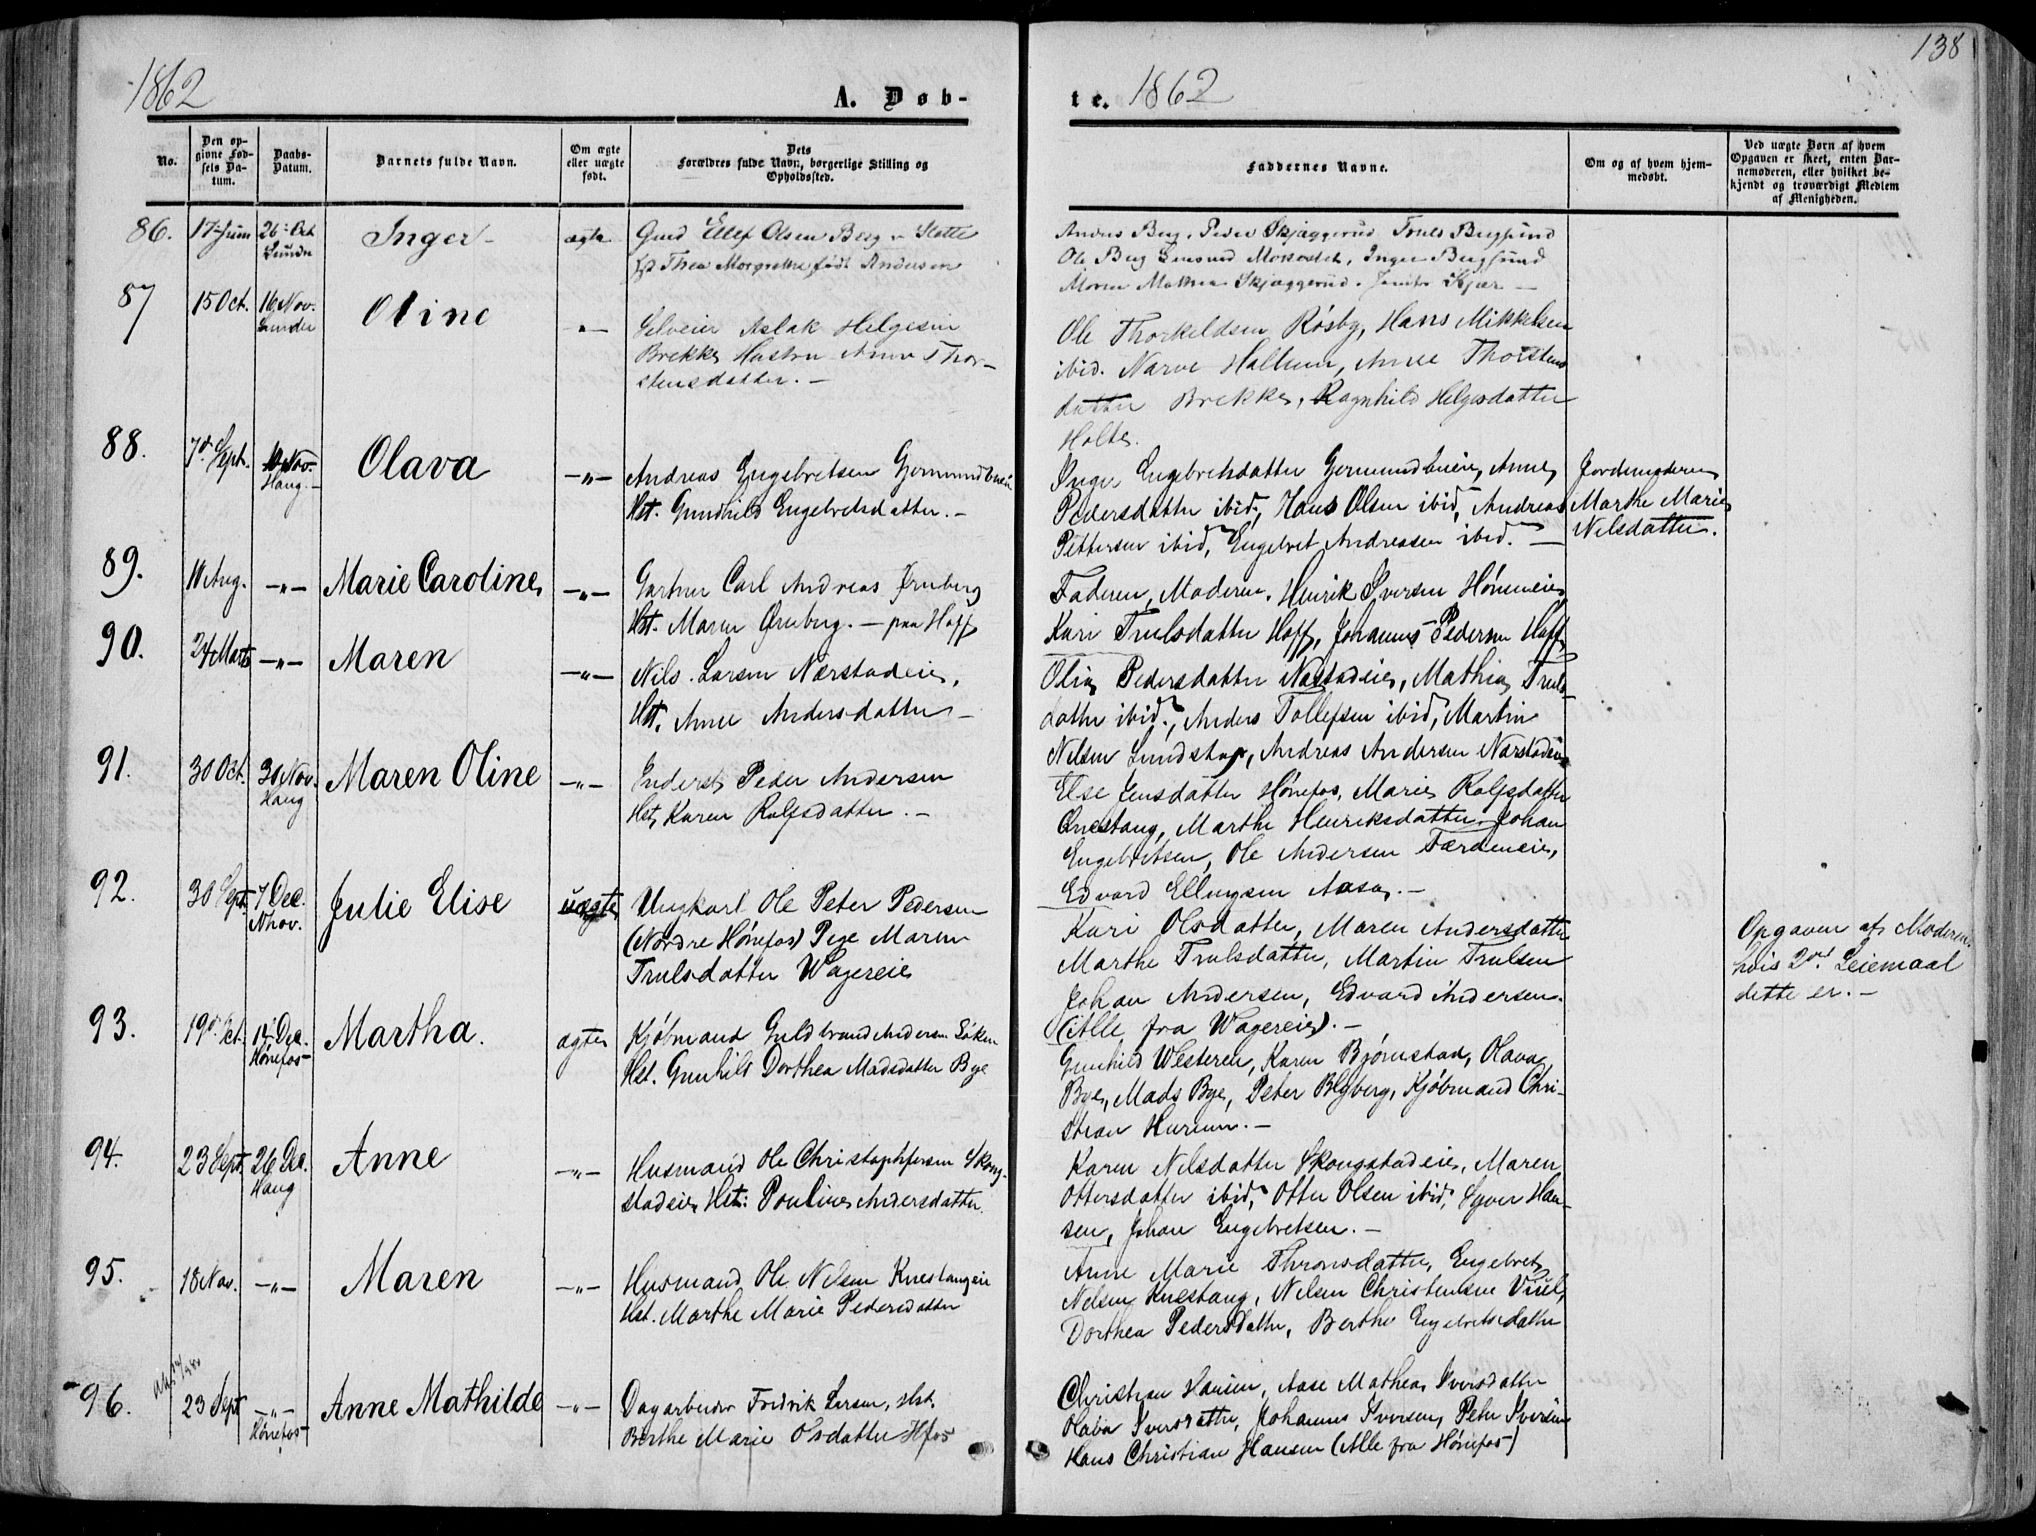 138
1862
A. Døb-
te. 1862
No.
Den op-
givne Fød-
sels Da-
tum.
Daabs-
Datum.
Barnets fulde Navn.
Om ægte
eller uægte
født.
Dets
Forældres fulde Navn, borgerlige Stilling og
Opholdssted.
Faddernes Navne.
Om og af hvem hjem-
medøbt.
Ved uægte Børn af hvem
Opgaven er skeet, enten Bar-
nemoderen, eller hvilket be-
kjendt og troværdigt Medlem
af Menigheden.
86. 17 Juni 26 Oct Inger ægte Olsen Berg
Lunder Thea Morgrethe født Andersen
Berg, Peder Skjæggerud Truls Bergsund
Ole Berg Inger Bergsund
Maren Mathea Skjæggerud
87 15 Oct. 16 Nov. Oline -"- Selveier Aslak Helgesen
Lunder Brekke Hustru Anne Thor-
stensdatter. -
Ole Thorkeldsen Røsby, Hans Mikkelsen
ibid. Narve Hallum, Anne Thorstens
datter Brekke, Ragnhild Helgesdatter
Holte.
88. 7de Sept. Nov. Olava -"- Andreas Engebretsen Gjermundboeie
Haug. - Hst. Gunhild Engebretsdatter. -
Inger Engebretsdatter Gjermundboeie, Anne
Pedersdatter ibid, Hans Olsen ibid, Andreas
Pettersen ibid, Engebret Andreasen ibid. -
Jordemoderen
Marthe Marie
Nilsdatter.
89. Aug. -"- Marie Caroline -"- Gartner Carl Andreas Ørnberg
Hst. Maren Ørnberg. - paa Hoff
Faderen, Moderen. Henrik Iversen Hønneneie
Kari Trulsdatter Hoff, Johannes Pedersen Hoff
90. 24 Marts -"- Maren -"- Nils Larsen Nærstadeie,
Hst. Anne Andersdatter -
Olia Pedersdatter Næstadeie, Mathia Truls-
datter ibid., Anders Tollefsen ibid, Martin
Nelsen, Andreas Andersen Nærstadeie
91. 30 Oct. 30 Nov. Maren Oline -"- Inderst Peder Andersen
Haug Hst. Karen Rolfsdatter. -
Else Jensdatter Hønefos, Marie Rolfsdatter
Knestang, Marthe Henriksdatter, Johan
Engebretsen, Ole Andersen Færdeneie,
Edvard Ellingsen Aasa. -
92. 30 Sept. 7 Dec. Julie Elise uægte Ungkarl Ole Peter Pedersen
Nhov. (Nordre Hønefos) Pige Maren
Trulsdatter Wagereie
Kari Olsdatter, Maren Andersdatter
Marthe Trulsdatter, Martin Trulsen
Johan Andersen, Edvard Andersen.
(Alle fra Wagereie). -
Opgaven af Moderen
hvis 2det Leiemaal
dette er. -
93. 19de Oct. Dec. Martha. ægte Kjøbmand Guldbrand Andersen Løken
Hønefos Hst. Gunhild Dorthea Madsdatter Bye
Gunhild Westeren, Karen Bjørnstad, Olava
Bye, Mads Bye, Peter Blyberg, Kjøbmand Chri-
stian Hurum. -
94. 23 Sept. 26 Dec. Anne -"- Husmand Ole Christophersen Skoug-
Haug stadeie Hst: Pouline Andersdatter.
Karen Nilsdatter Skougstadeie, Maren
Ottersdatter ibid, Otter Olsen ibid, Syver Han-
sen, Johan Engebretsen. -
95. 18 Nov. -"- Maren -"- Husmand Ole Nilsen Knestangeie
Hst. Marthe Marie Pedersdatter
Anne Marie Thronsdatter, Engebret
Nelsen Knestang, Nelsen Christensen Viul,
Dorthea Pedersdatter, Berthe Engebretsdatter
96. 23 Sept -"- Anne Mathilde -"- Dagarbeider Fredrik Larsen, Hst.
Hønefos Berthe Marie Olsdatter Hfos
Christian Hansen, Aase Mathea Iversdatter
Olava Iversdatter, Johannes Iversen, Peter Iversen
Hans Christian Hansen (Alle fra Hønefos)